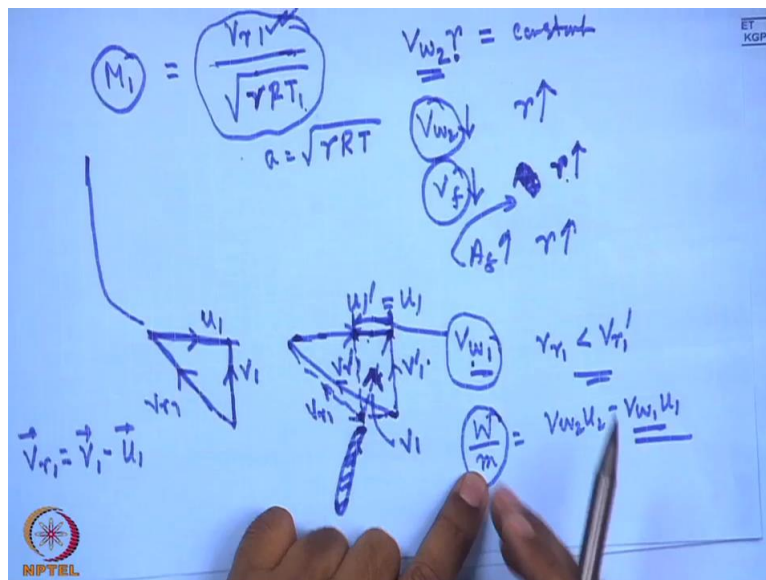 M₁ = Vr1 / √γRT₁
a = √γRT
Vw2 r = constant
Vw2 ↓ r ↑
Vf ↓ r ↑
Af ↑ r ↑
u₁
V₁
Vr1
V⃗r1 = V⃗₁ - u⃗₁
u₁' = u₁
Vr1'
V₁'
Vr1
V₁
Vw1
rr1 < Vr1'
W/m = Vw2u2 - Vw1u1
ET
KGP
NPTEL